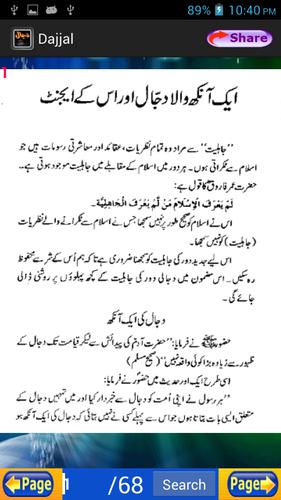 89% 10:40 PM
Dajjal
Share
ایک آنکھ والا دجّال اور اس کے ایجنٹ
”جاہلیت“ سے مراد وہ تمام نظریات، عقائد اور معاشرتی رسومات ہیں جو
اسلام سے ٹکراتی ہوں۔ ہر دور میں اسلام کے مقابلے میں جاہلیت موجود ہوتی ہے۔
حضرت عمر فاروقؓ کا قول ہے:
لَمْ یَعْرِفِ الْاِسْلَامَ مَنْ لَّمْ یَعْرِفِ الْجَاهِلِیَّةَ۔
اس نے اسلام کو صحیح طور پر نہیں سمجھا جس نے اسلام سے ٹکرانے والے نظریات
(جاہلیت) کو نہیں سمجھا۔
اس لیے جدید دور کی جاہلیت کو سمجھنا ضروری ہے تاکہ ہم اُس کے شر سے محفوظ
رہ سکیں۔ اس مضمون میں دجالی دور کی جاہلیت کے کچھ پہلوؤں پر روشنی ڈالی
جائے گی۔
دجال کی ایک آنکھ
حضور ﷺ نے فرمایا: ”حضرت آدمؑ کی پیدائش سے لے کر قیامت تک دجال کے
ظہور سے زیادہ بڑا کوئی واقعہ نہیں“ (صحیح مسلم)
اسی طرح ایک اور حدیث میں حضورؐ نے فرمایا:
”ہر رسول نے اپنی اُمت کو دجال سے خبردار کیا اور میں تمہیں دجال کے
متعلق ایسی بات بتاتا ہوں جو اس سے پہلے کسی نے نہیں بتائی کہ دجال کی ایک آنکھ ہو
Page 1 /68 Search Page